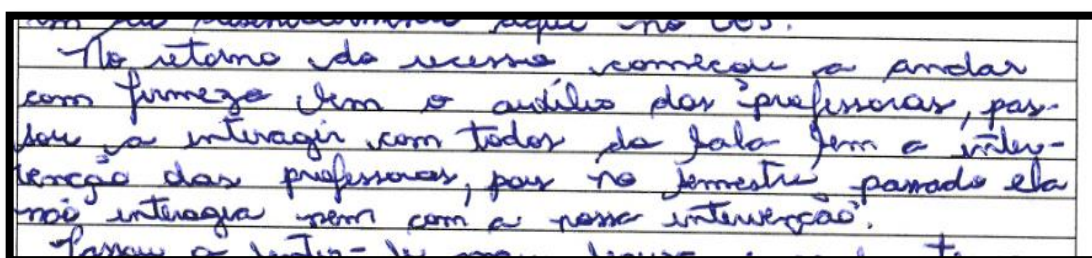 aqui no CEI.
No retorno do recesso começou a andar
com firmeza sem o auxílio das professoras, pas-
sou a interagir com todos da sala sem a inter-
venção das professoras, pois no semestre passado ela
não interagia nem com a nossa intervenção.
Passou a